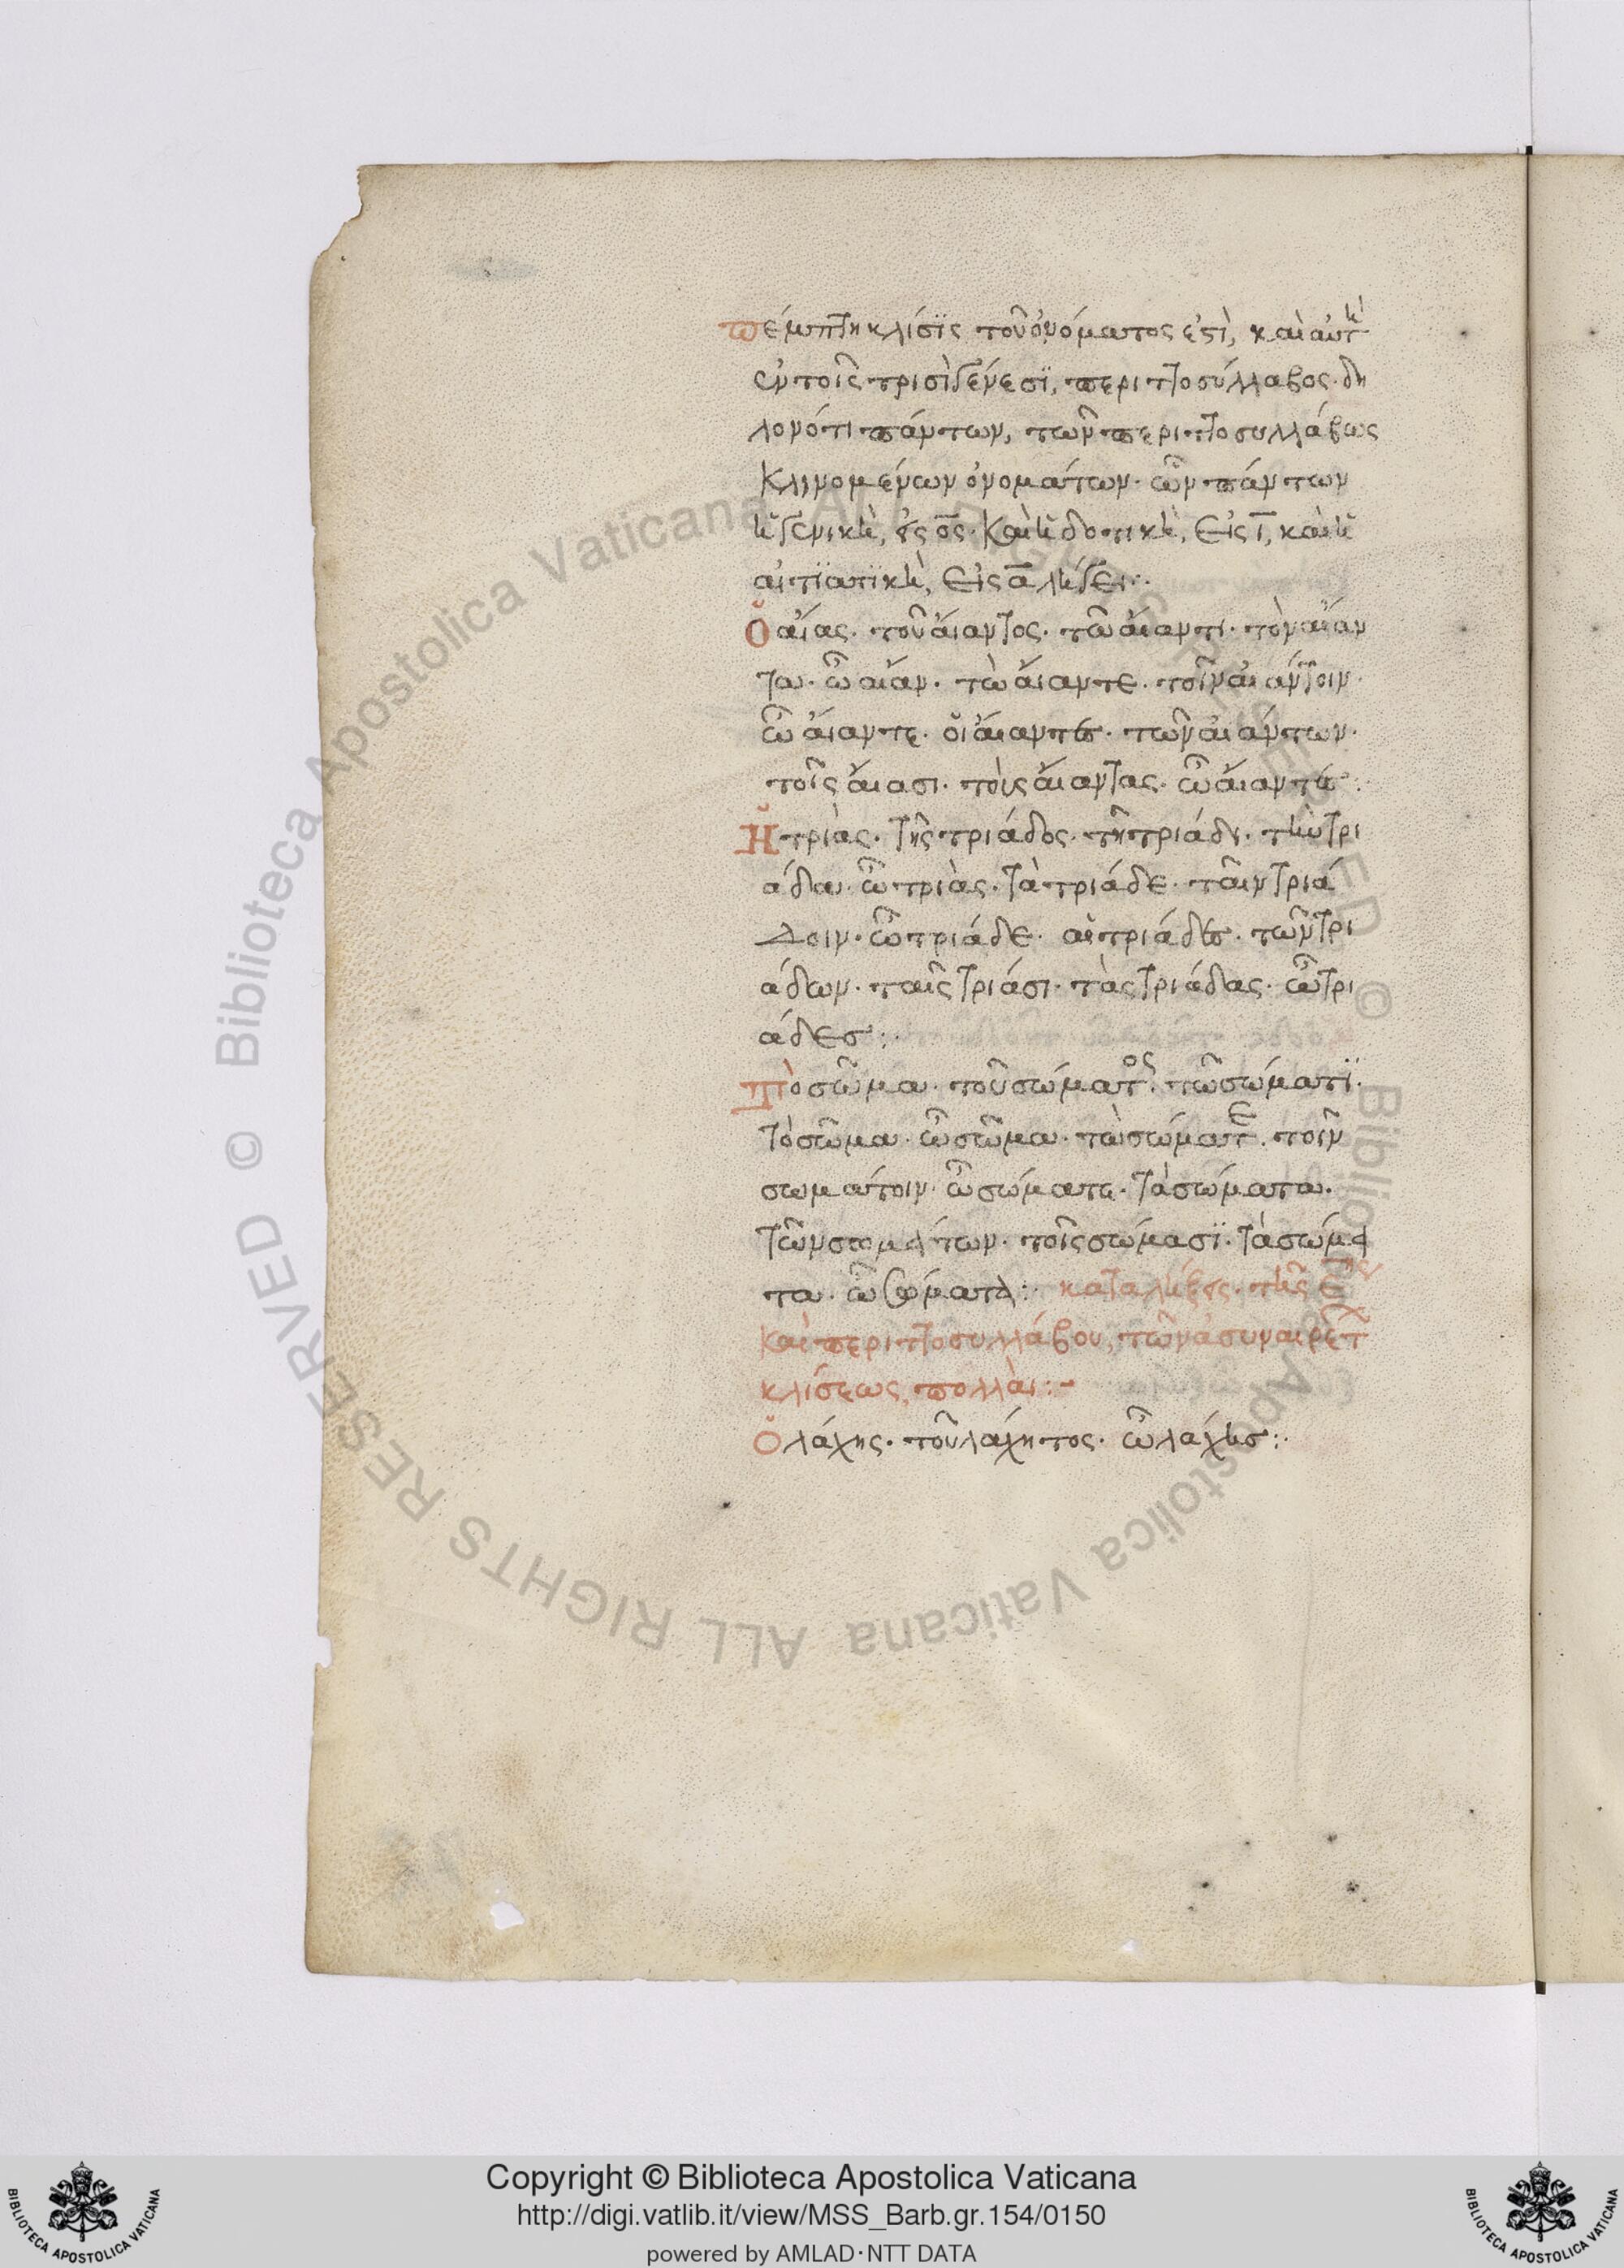 πέμπτη κλίσϊς τοῦ ὀνόματος ἐστὶ, καὶ αὐτὴ
ἐν τοῖς τρισὶ γένεσϊ, περιττοσύλλαβος· δη
λονότι πάντων, τῶν περιττοσυλλάβως
κλινομένων ὀνομάτων· ὧν πάντων
ἡ γενικὴ, εἰς ος· καὶ ἡ δοτικὴ, εἰς ι, καὶ ἡ
αἰτϊατϊκὴ, εἰς α λήγει:·
Ὁ αἴας· τοῦ αἴαντος· τῶ αἴαντι· τὸν αἴαν
τα· ὦ αἶαν· τὼ αἴαντε· τοῖν αἰάντοιν·
ὦ αἴαντε· οἱ αἴαντες· τῶν αἰάντων·
τοῖς αἴασι· τοὺς αἴαντας· ὦ αἴαντες:
Ἡ τριὰς· τῆς τριάδος· τῆ τριάδι· τὴν τρι
άδα· ὦ τριὰς· τὰ τριάδε· ταῖν τριά
δοιν· ὦ τριάδε· αἱ τριάδες· τῶν τρι
άδων· ταῖς τριάσι· τὰς τριάδας· ὦ τρι
άδες:·
Τὸ σῶμα· τοῦ σώματος· τῶ σώματϊ·
τὸ σῶμα· ὦ σῶμα· τὼ σώματε· τοῖν
σωμάτοιν· ὦ σώματε· τὰ σώματα·
τῶν σομάτων· τοῖς σώμασϊ· τὰ σώμα
τα· ὦ σώματα:· καταλήξεις· τῆς ε^ης
καὶ περιττοσυλλάβου, τῶν ἀσυναιρέτ
κλίσεως, πολλαὶ:-
Ὁ λάχης· τοῦ λάχητος· ὦ λάχης:·
Copyright © Biblioteca Apostolica Vaticana
http://digi.vatlib.it/view/MSS_Barb.gr.154/0150
powered by AMLAD·NTT DATA
© Biblioteca Apostolica Vaticana ALL RIGHTS RESERVED © Biblioteca Apostolica Vaticana ALL RIGHTS RESERVED
BIBLIOTECA APOSTOLICA VATICANA
BIBLIOTECA APOSTOLICA VATICANA